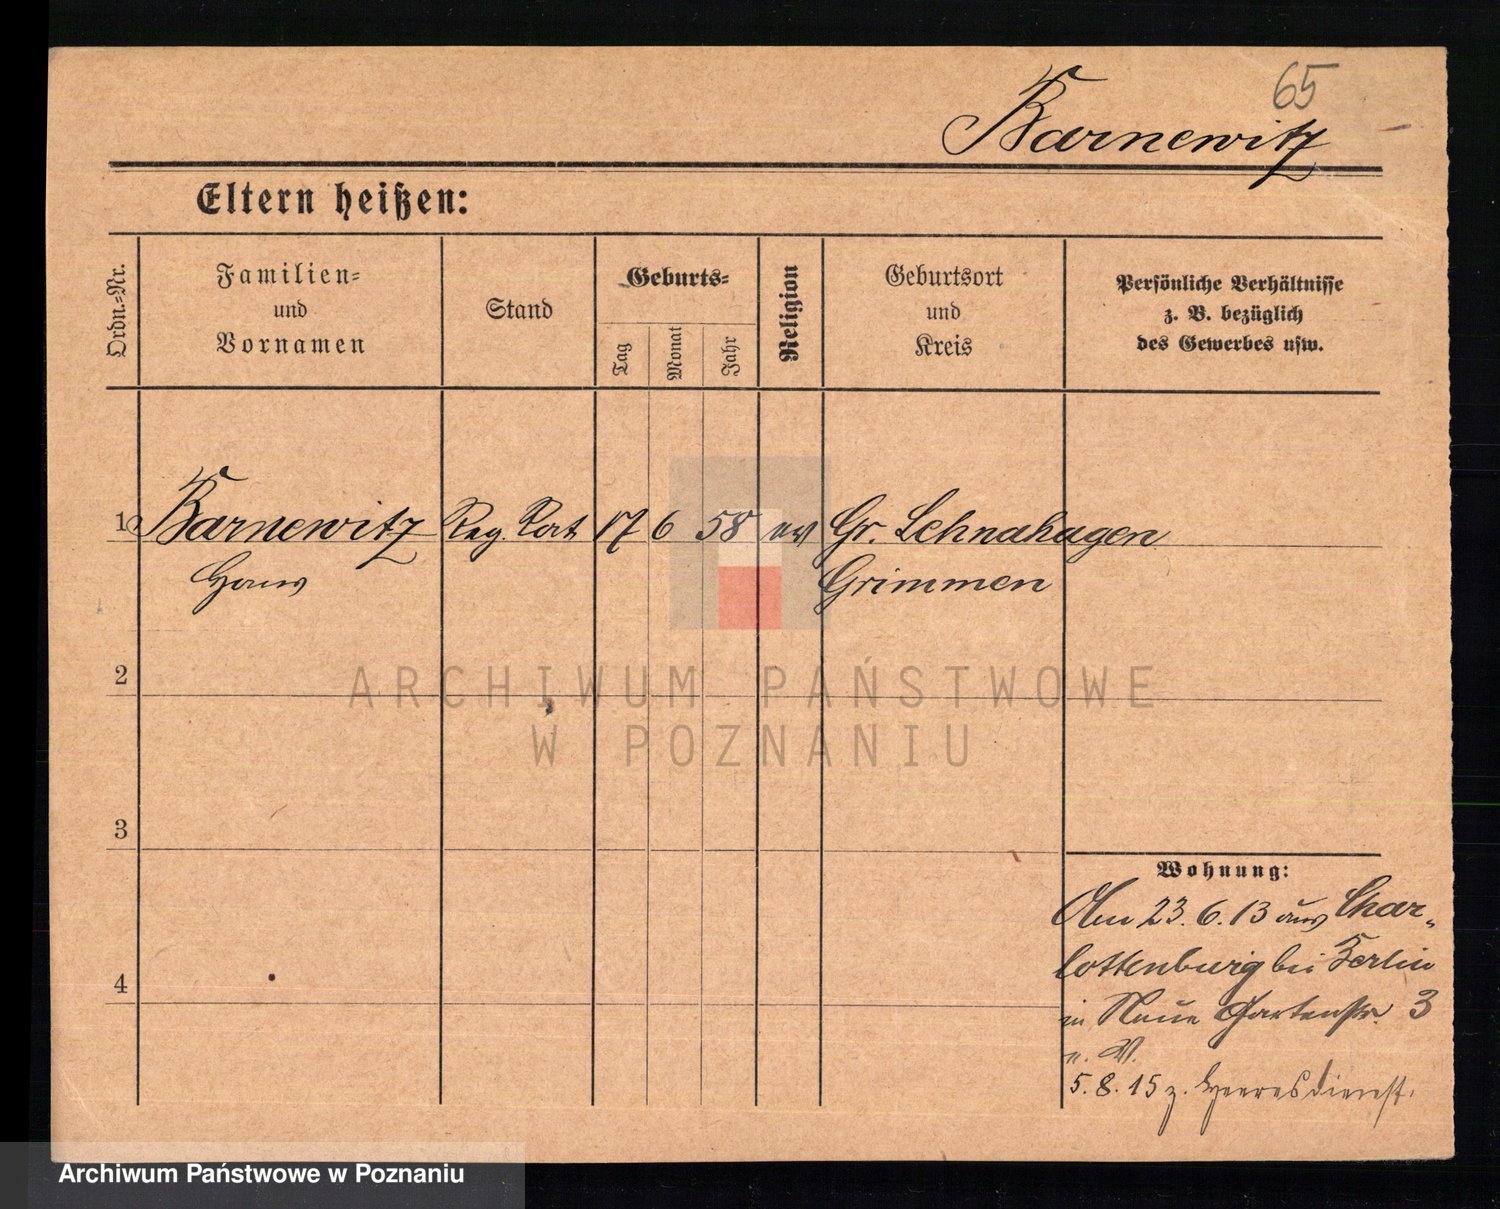 65
Barnewitz
Eltern heißen:
Ordn.-Nr.
Familien-
und
Vornamen
Stand
Geburts-
Tag
Monat
Jahr
Religion
Geburtsort
und
Kreis
Persönliche Verhältnisse
z. B. bezüglich
des Gewerbes usw.
1 Barnewitz Reg. Rat 17 6 58 ev Gr. Lehnahagen
Hans Grimmen
2
ARCHIWUM PAŃSTWOWE
W POZNANIU
3
Wohnung:
Am 23. 6. 13 aus Char-
lottenburg bei Berlin
4
in Neue Gartenstr. 3
n. W.
5. 8. 15 z. Heeresdienst.
Archiwum Państwowe w Poznaniu